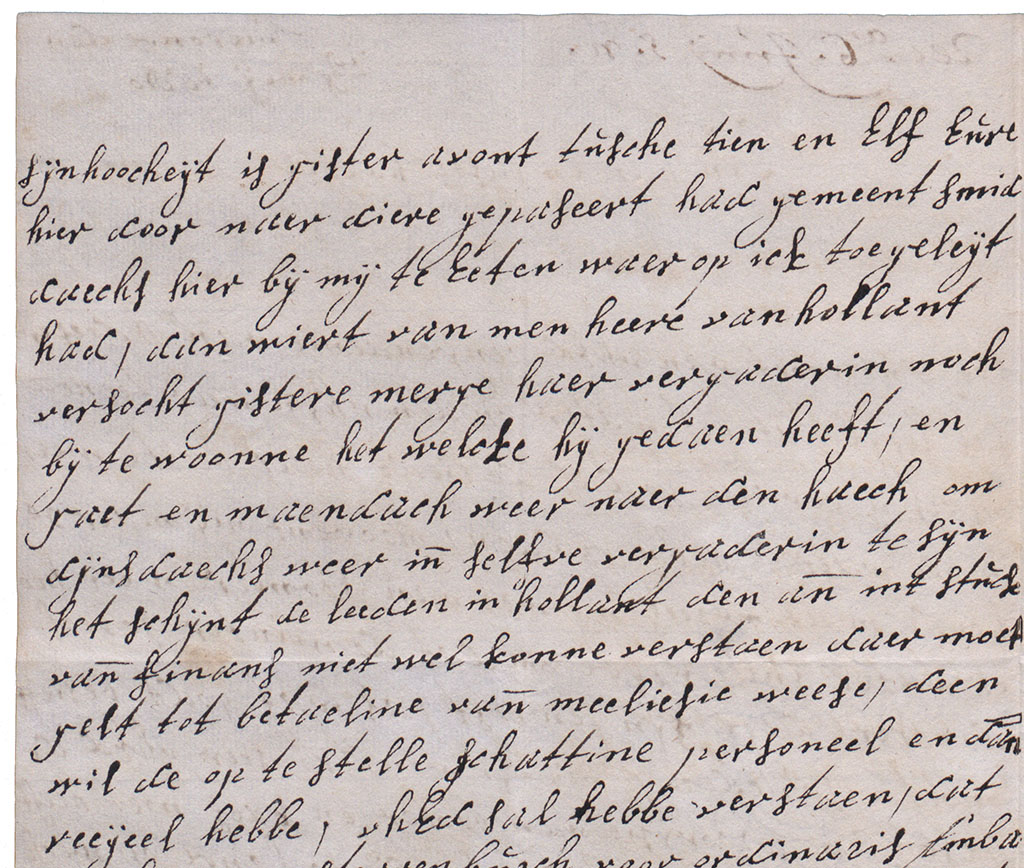 sijnhoocheijt is gister avont tusche tien en Elf Eure
hier door naer diere gepaseert had gemeent smid
daechs hier bij mij te Eeten waer op ick toegeleijt
had, dan wiert van men heere van hollant
versocht gistere merge haer vergaderin noch
bij te woonne het welcke hij gedaen heeft, en
gaet en maendach weer naer den haech om
dijnsdaechs weer in selfve vergaderin te sijn
het schijnt de leeden in hollant den an int stuck
van finans niet wel konne verstaen daer moet
gelt tot betaeline van meeliesie weese, deen
wil de op te stelle schattine personeel en dan
reeijeel hebbe, uhEd sal hebbe verstaen, dat
voor ordinaris